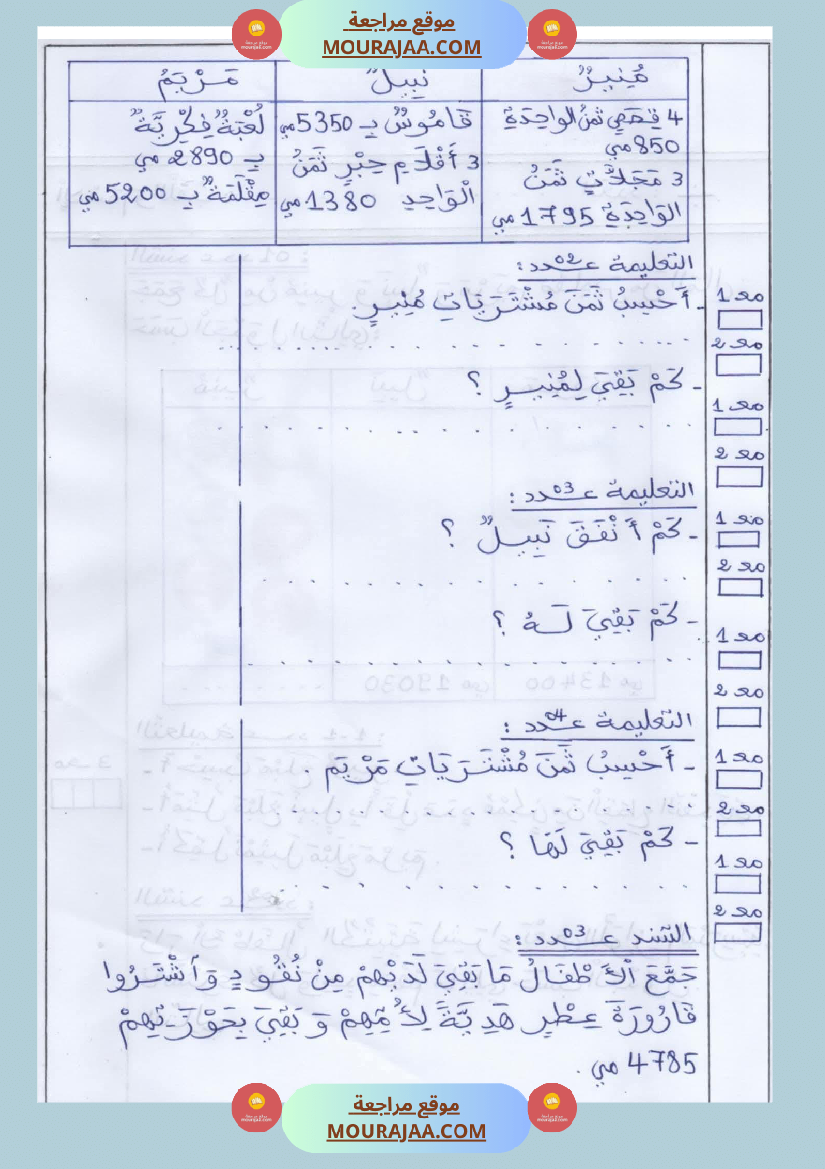 موقع مراجعة
MOURAJAA.COM
مُنِيرٌ	نَبِيلٌ	مَرْيَمُ
4 قِصَصٍ ثَمَنُ الوَاحِدَةِ	قَامُوسٌ بِـ 5350 مي	لُعْبَةٌ فِكْرِيَّةٌ
850 مي	3 أَقْلَامِ حِبْرٍ ثَمَنُ	بِـ 2890 مي
3 مَجَلَّاتٍ ثَمَنُ	الْوَاحِدِ 1380 مي	مِقْلَمَةٌ بِـ 5200 مي
الوَاحِدَةِ 1795 مي
التعليمة عـ02ـدد:
- أَحْسِبُ ثَمَنَ مُشْتَرَيَاتِ مُنِيرٍ.
مع 1
مع 2
- كَمْ بَقِيَ لِمُنِيرٍ ؟
مع 1
مع 2
التعليمة عـ03ـدد:
- كَمْ أَنْفَقَ نَبِيلٌ ؟
مع 1
مع 2
- كَمْ بَقِيَ لَهُ ؟
مع 1
مع 2
التعليمة عـ04ـدد:
- أَحْسِبُ ثَمَنَ مُشْتَرَيَاتِ مَرْيَم .
مع 1
مع 2
- كَمْ بَقِيَ لَهَا ؟
مع 1
مع 2
السّند عـ03ـدد:
جَمَّعَ الْأَطْفَالُ مَا بَقِيَ لَدَيْهِمْ مِنْ نُقُودٍ وَ اشْتَرُوا
قَارُورَةَ عِطْرٍ هَدِيَّةً لِأُمِّهِمْ وَ بَقِيَ بِحَوْزَتِهِمْ
4785 مي .
موقع مراجعة
MOURAJAA.COM